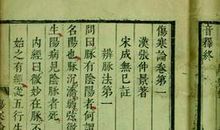 音釋終
傷寒論卷第一
漢張仲景著
宋成無已註
辨脈法第一
問曰脈有陰陽者何謂
名陽也脈沉濇弱弦微
生陽病見陰脈者死
內經曰微妙在脈不
始之有經 五行生